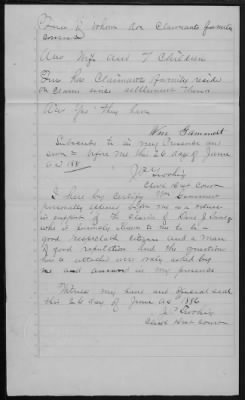 of whom does Claimants family
consist
Ans Wife and 7 Children
Ques has Claimants family reside
on claim since settlement thereon
Ans Yes they have
Wm Hammett
Subscribed to in my Presence and
sworn to before me this 26 day of June
AD 188
Clerk Dist Court
I here by certify Wm Hammett
personally appeared before me as a witness
in support of the Claim of
who is personally known to me to be a
good respectable citizen and a man
of good reputation and the question
here to attached was only asked by
me and answered in my presence
Witness my hand and official seal
this 26 day of June AD 1886
Clerk Dist Court